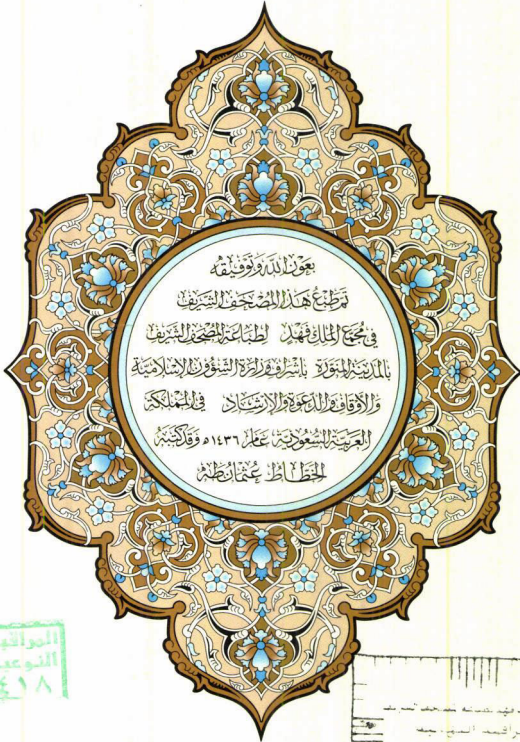 بعون الله وتوفيقه
تم طبع هذا المصحف الشريف
في مجمع الملك فهد لطباعة المصحف الشريف
بالمدينة المنورة بإشراف وزارة الشؤون الإسلامية
والأوقاف والدعوة والإرشاد في المملكة
العربية السعودية عام ١٤٣٦ه وقد كتبه
الخطاط عثمان طه
المراقبة
النوعية
٤١٨